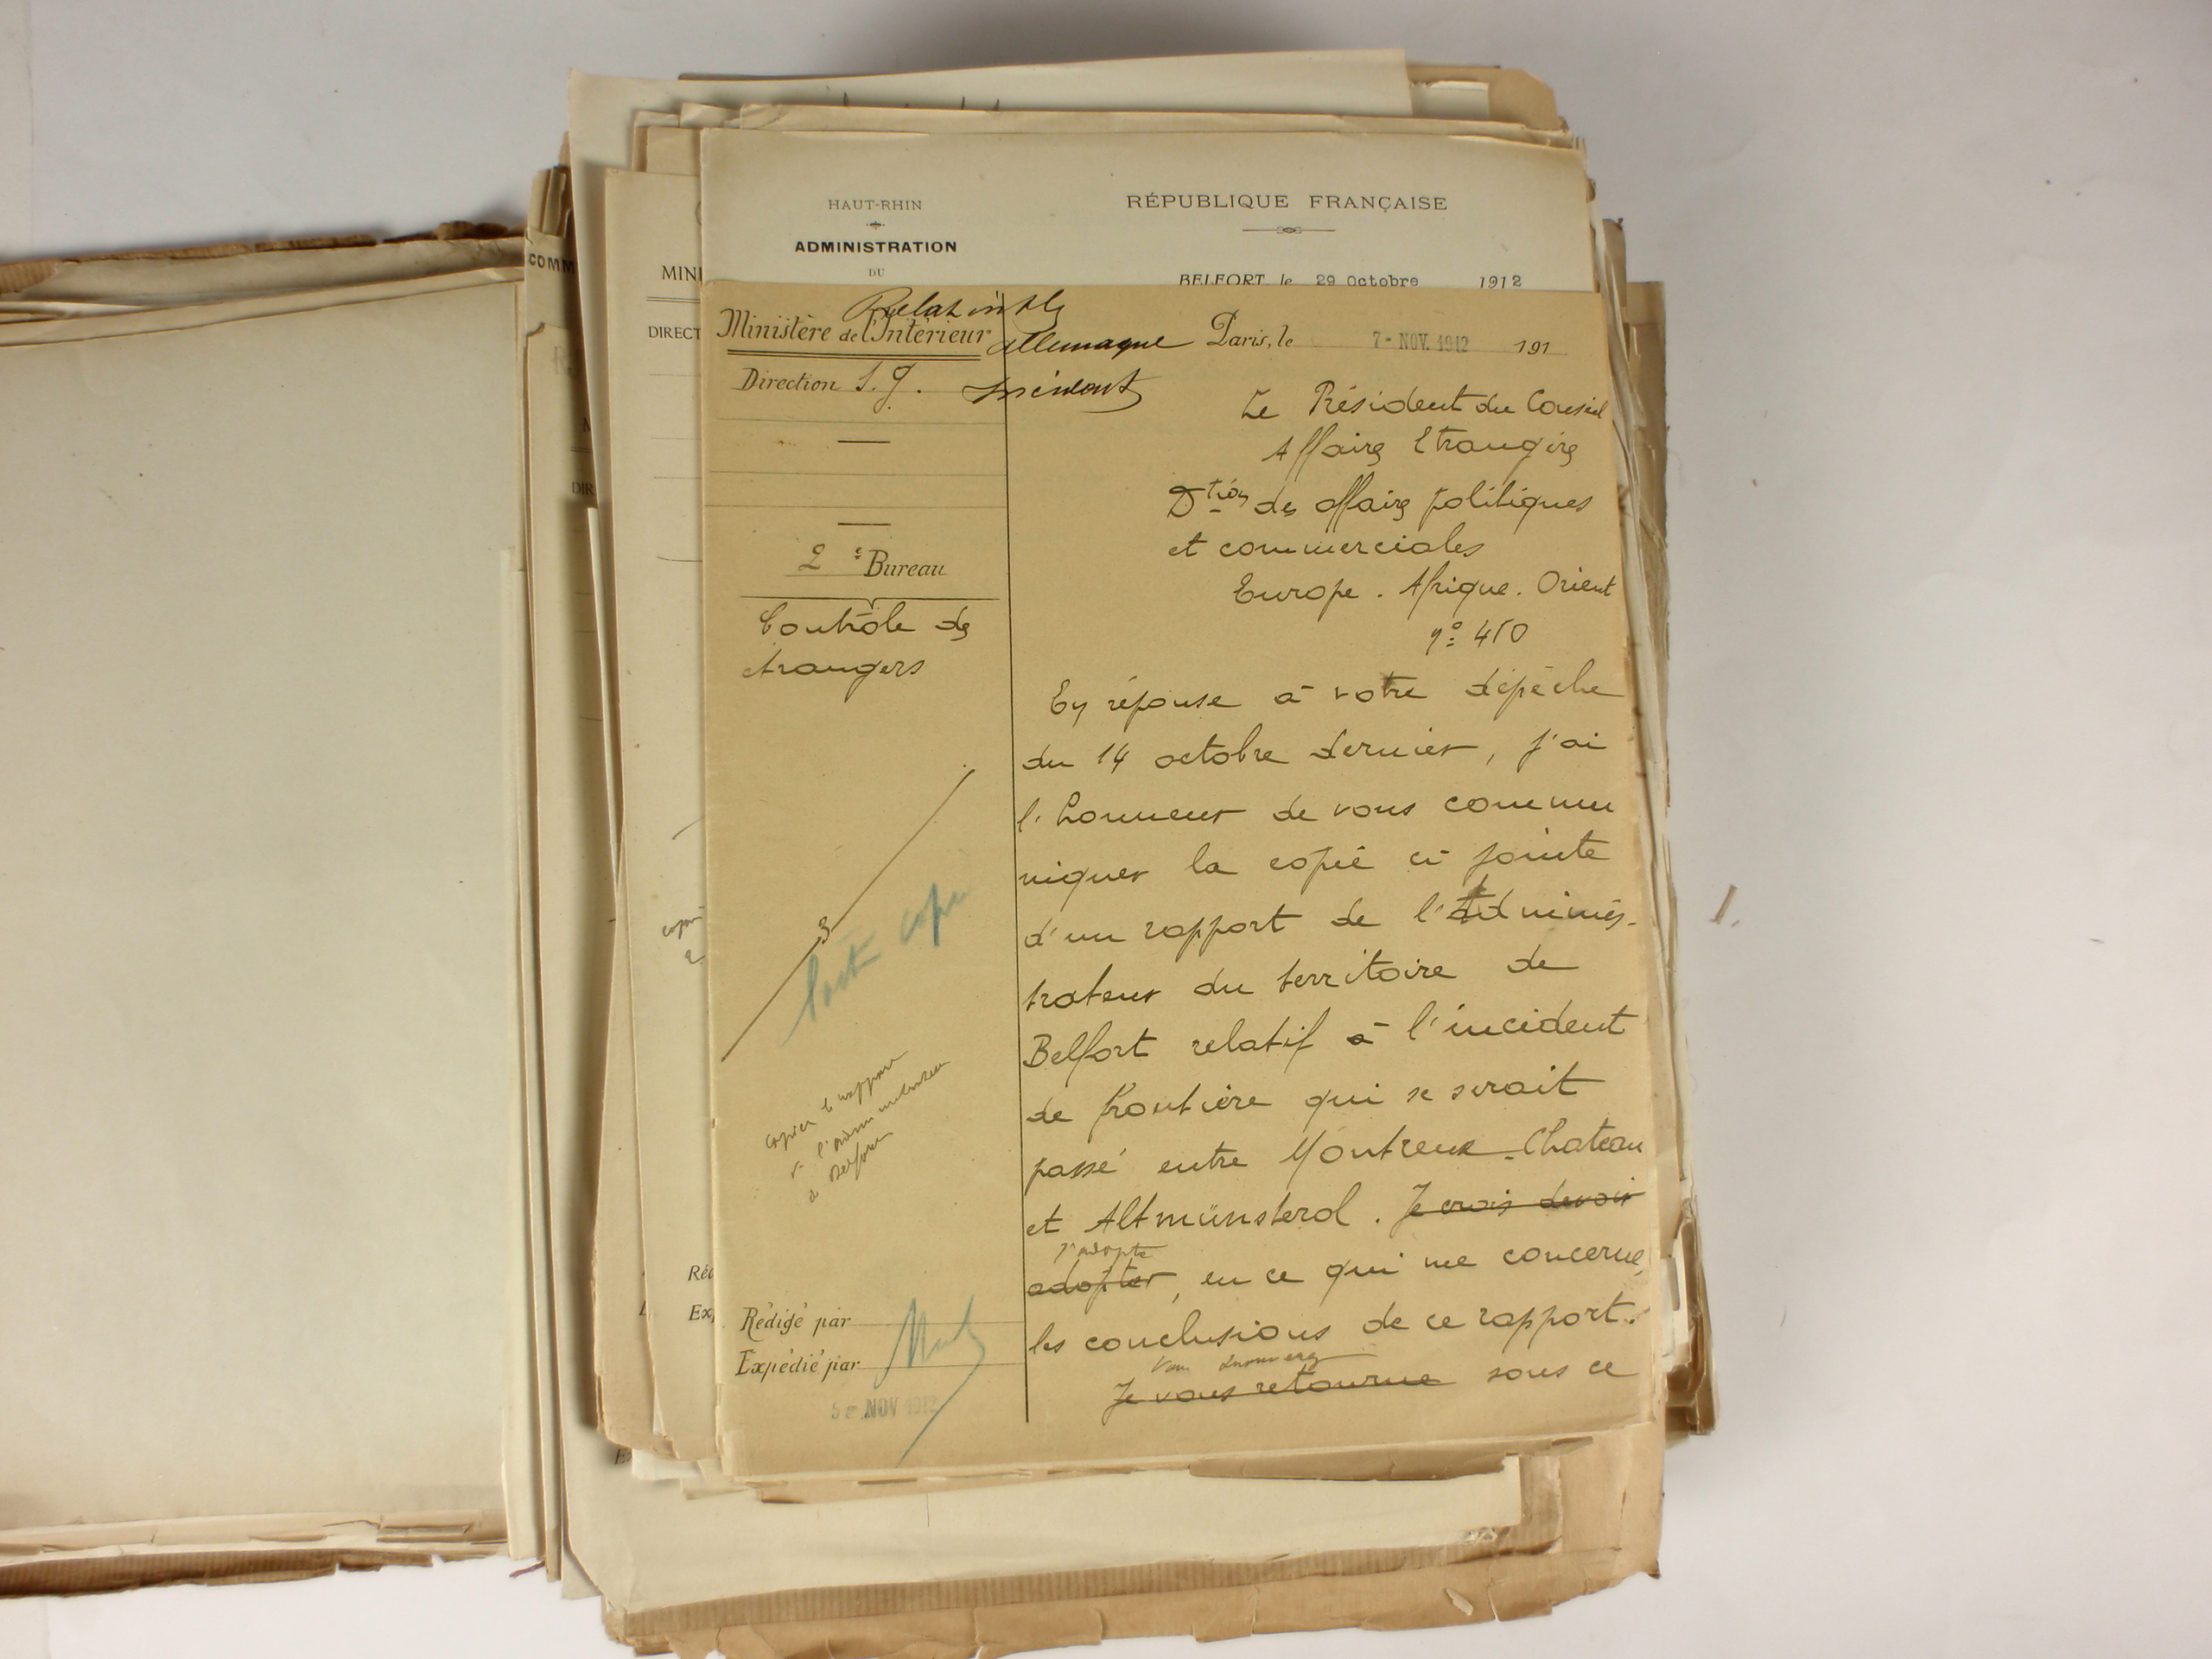 HAUT-RHIN
ADMINISTRATION
DU
RÉPUBLIQUE FRANÇAISE
BELFORT, le 29 Octobre 1912
COMM
MINI
DIRECT
DIR
Ministère de l'Intérieur
Allemagne
Incident
Paris, le 7 - NOV. 1912 191
Direction S. g.
2e Bureau
Contrôle des
étrangers
Le Président du Conseil
Affaires Etrangères
Dtion des affaires politiques
et commerciales
Europe. Afrique. Orient
En réponse à votre dépêche
du 14 octobre dernier, j'ai
l'honneur de vous commu
niquer la copie ci-jointe
d'un rapport de l'Adminis-
trateur du territoire de
Belfort relatif à l'incident
de frontière qui se serait
passé entre Montreux-Chateau
et Altmünsterol. Je crois devoir
j'adopte
adopter, en ce qui me concerne,
les conclusions de ce rapport.
Je vous retourne sous ce
3
copier le rapport
de l'administrateur
de Belfort
Réd
Exp
Rédigé par
Expédié par
5 - NOV 1912